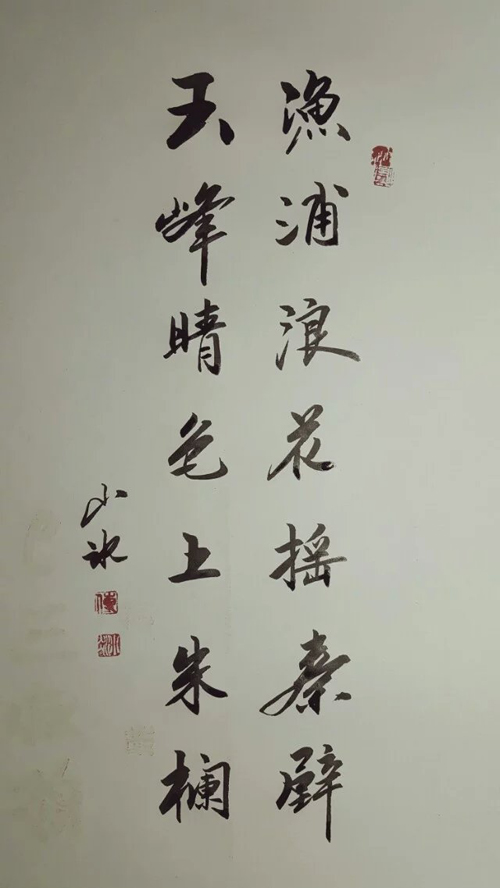 漁浦浪花摇素壁
玉峰晴色上朱欄
小冰